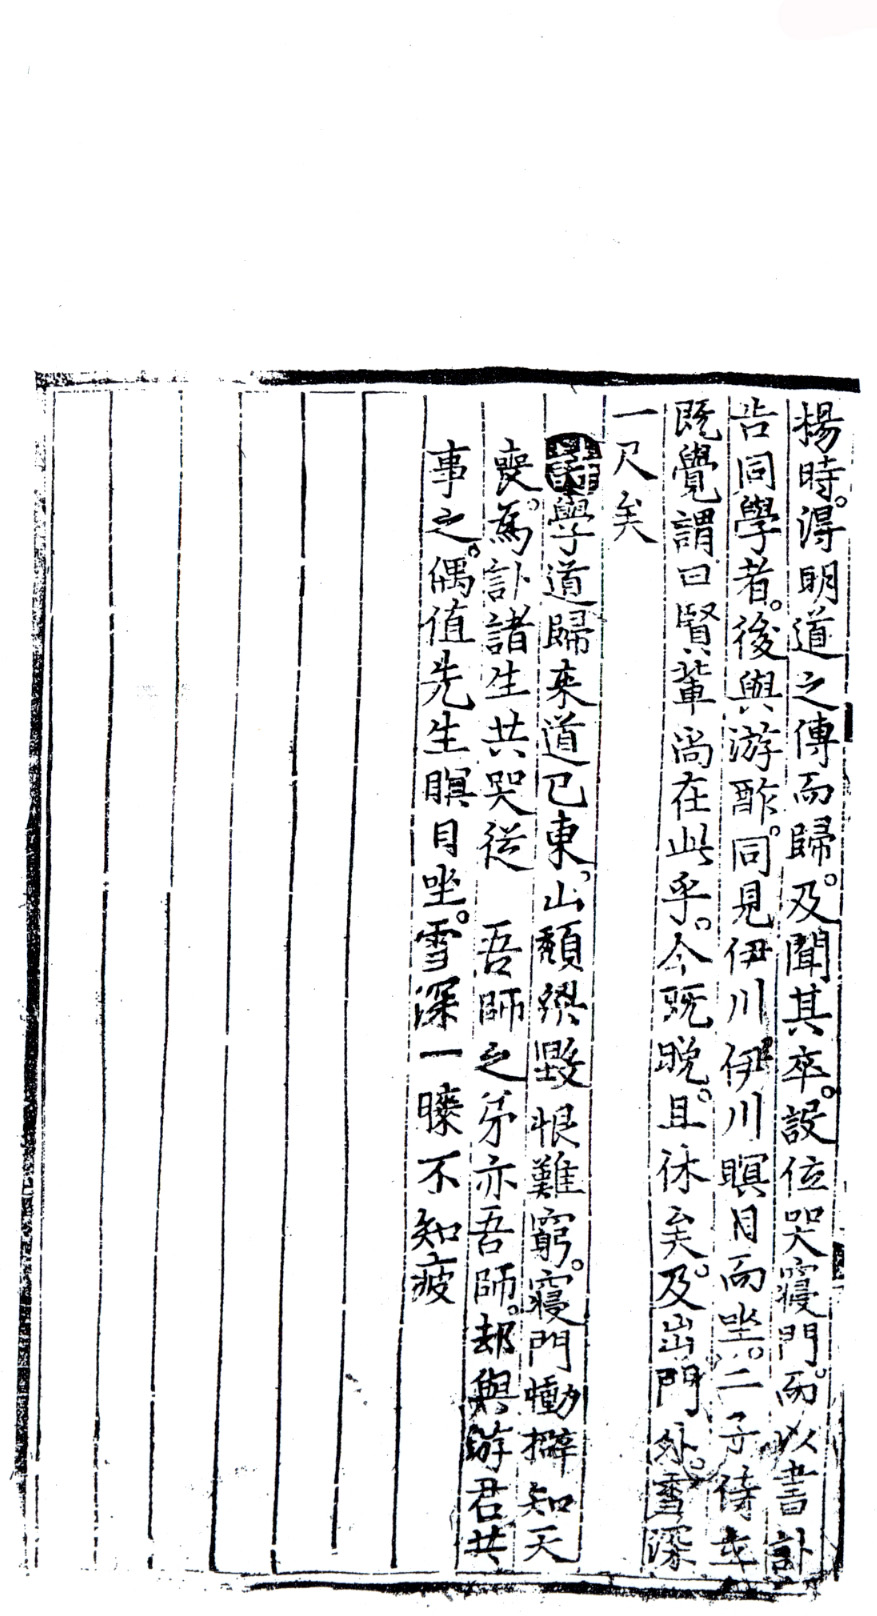 楊時。得明道之傳而歸。及聞其卒。設位哭寢門。而以書訃
告同學者。後與游酢。同見伊川伊川瞑目而坐。二子侍立
既覺謂曰賢輩尚在此乎。今既晚。且休矣。及出門外。雪深
一尺矣
詩學道歸來道已東。山頹樑毀恨難窮。寢門慟擗知天
喪。爲訃諸生共哭從 吾師之弟亦吾師。却與游君共
事之。偶值先生瞑目坐。雪深一膝不知疲